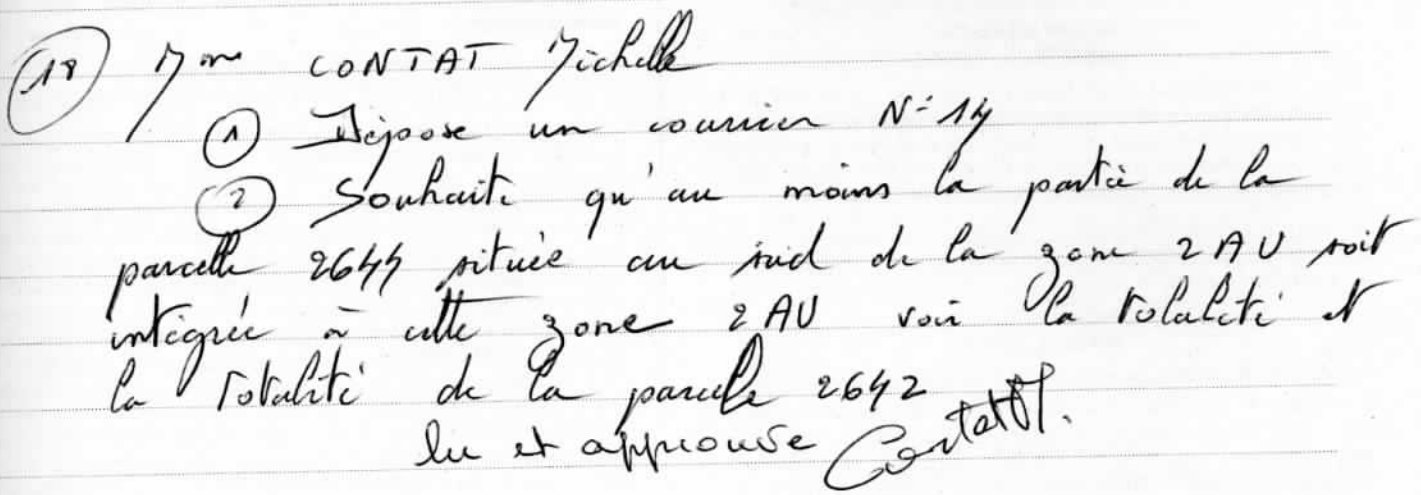 18 Mme CONTAT Michelle
1 Dépose un courrier N° 14
2 Souhaite qu'au moins la partie de la
parcelle 2644 située au sud de la zone 2AU soit
intégrée à cette zone 2AU voir la totalité et
la totalité de la parcelle 2642
lu et approuvé Contat M.